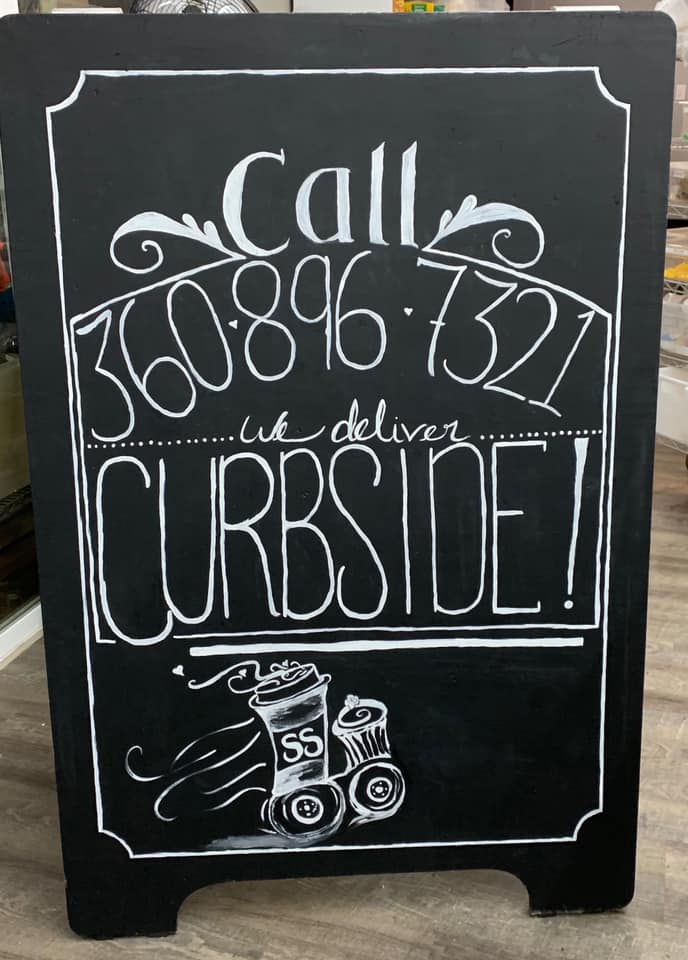 Call
360·896·7321
we deliver
CURBSIDE!
SS